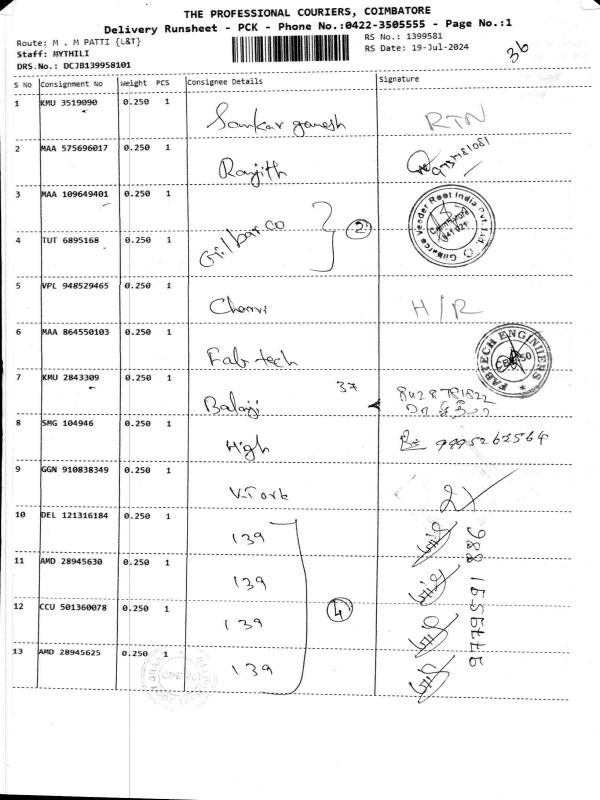 THE PROFESSIONAL COURIERS, COIMBATORE
Delivery Runsheet - PCK - Phone No.:0422-3505555 - Page No.:1
Route: M . M PATTI {L&T}
RS No.: 1399581
Staff: MYTHILI
RS Date: 19-Jul-2024
36
DRS.No.: DCJB139958101
S No Consignment No Weight PCS Consignee Details Signature
1 KMU 3519090 0.250 1 Sankar ganesh RTN
2 MAA 575696017 0.250 1 Ranjith
3 MAA 109649401 0.250 1 Gilbarco 2
Gilbarco Veeder Root India Pvt. Ltd.
4 TUT 6895168 0.250 1
5 VPL 948529465 0.250 1 H/R
6 MAA 864550103 0.250 1 Fab tech
FABTECH ENGINEERS
7 KMU 2843309 0.250 1 Balaji 37
8 SMG 104946 0.250 1 High
9 GGN 910838349 0.250 1 V.Tork
10 DEL 121316184 0.250 1 139
11 AMD 28945630 0.250 1 139
12 CCU 501360078 0.250 1 139 4
13 AMD 28945625 0.250 1 139